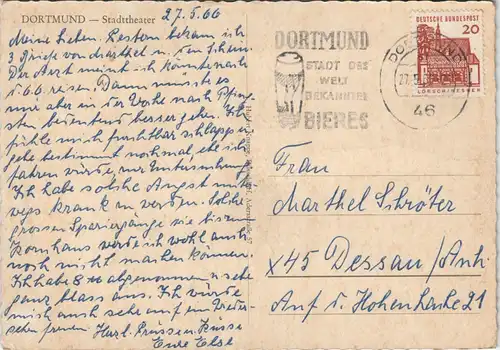 DORTMUND — Stadttheater
27.5.66
Meine Lieben. Gestern bekam ich
3 Briefe von Marthel u. den Schein.
Der Arzt meint ich könnte nach
d. 6.6. reisen. Dann müsste es
mir aber in der Woche nach Pfing-
sten bedeutend besser gehen. Ich
fühle mich furchtbar schlapp u.
gehe bestimmt nochmal, ehe ich
fahren würde, zur Untersuchung.
Ich habe solche Angst unter-
wegs krank zu werden. Solche
grossen Spaziergänge wie bis zum
Kornhaus werde ich wohl auch
noch nicht machen können.
Ich habe 8 abgenommen u. sehe
ganz blass aus. Ich würde
mich auch sehr auf ein Wieder-
sehen freuen. Herzl. Grüsse u. Küsse
Eure Else
DORTMUND
STADT DES
WELT
BEKANNTEN
BIERES
DORTMUND
27.5.
46
DEUTSCHE BUNDESPOST
20
LORSCH/HESSEN
Frau
Marthel Schröter
X45 Dessau/Anh.
Auf d. Hohenhacke 21